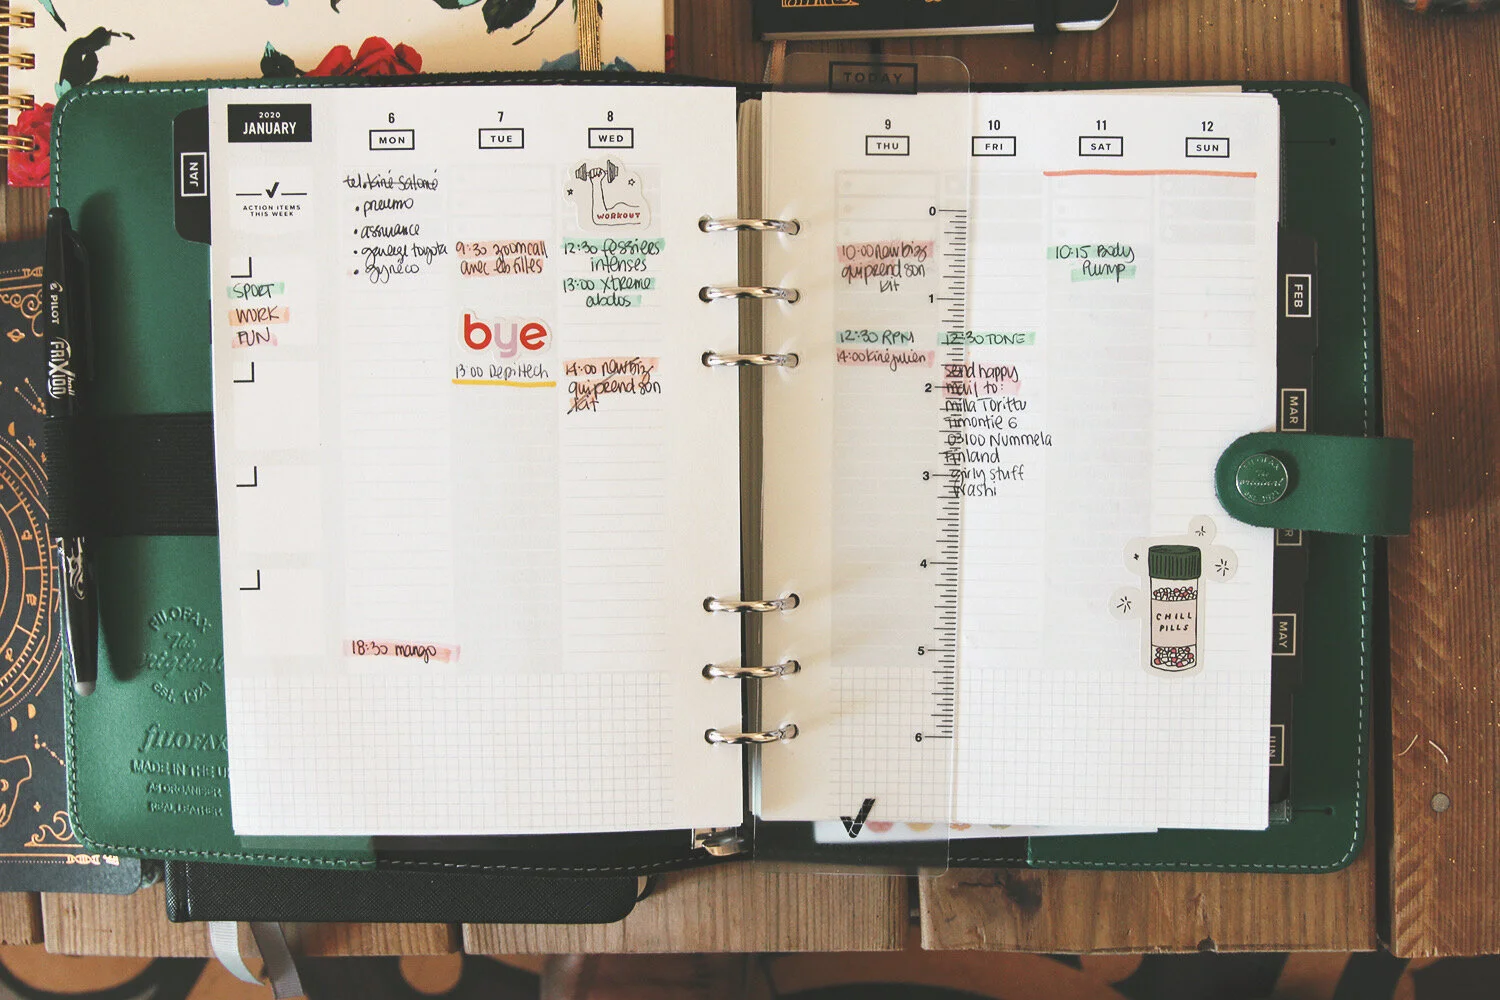 2020
JANUARY
JAN
ACTION ITEMS
THIS WEEK
SPORT
WORK
FUN
6
MON
tel. kiné Salomé
• pneumo
• assurance
• garage toyota
• gynéco
18:30 mango
7
TUE
9:30 zoom call
avec les filles
bye
13:00 Depiltech
8
WED
WORKOUT
12:30 fessiers
intenses
13:00 Xtreme
abdos
14:00 newbiz
qui prend son
kit
TODAY
9
THU
10:00 newbiz
qui prend son
kit
12:30 RPM
14:00 kiné julien
0
1
2
3
4
5
6
10
FRI
12:30 TONE
send happy
mail to:
milla Torittu
Timontie 6
03100 Nummela
Finland
girly stuff
washi
11
SAT
10:15 Body
Pump
12
SUN
CHILL
PILLS
FEB
MAR
MAY
JUN
PILOT
FRIXION
FILOFAX
The
original
est. 1921
fILOFAX
MADE IN THE UK
A5 ORGANISER
REAL LEATHER